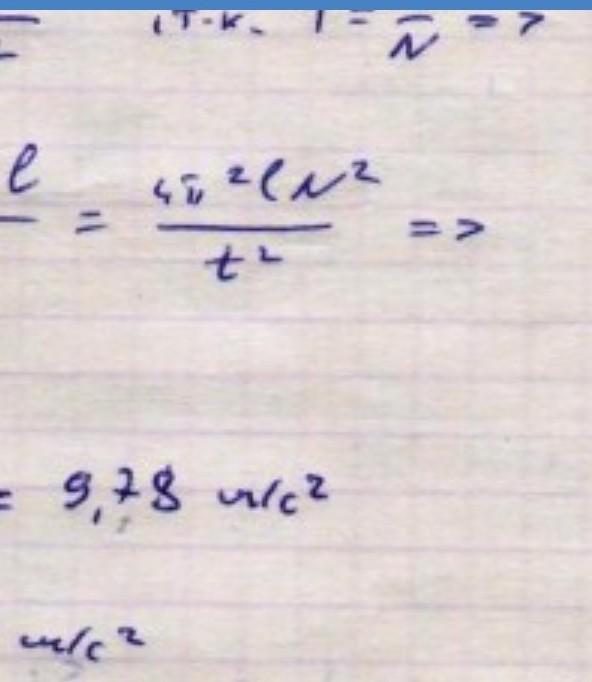 , т.к. T = — N =>
l — = 4π²lN² / t² =>
= 9,78 м/с²
м/с²